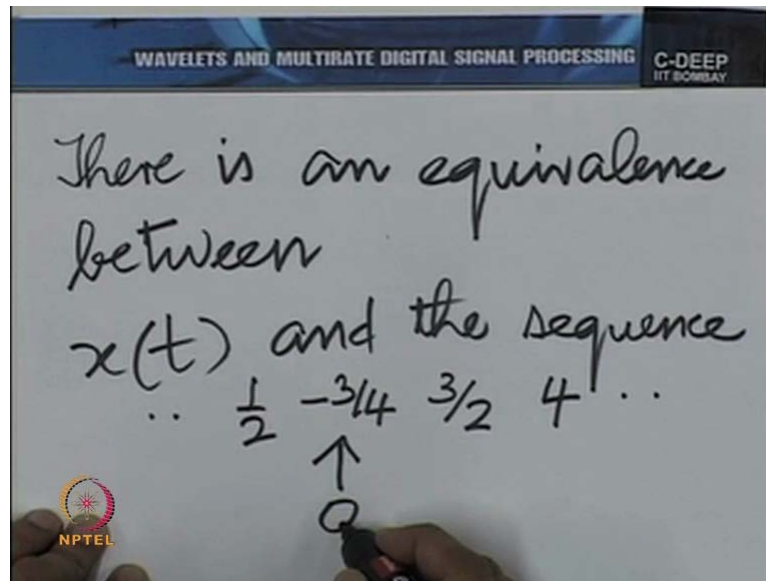 WAVELETS AND MULTIRATE DIGITAL SIGNAL PROCESSING
C-DEEP
IIT BOMBAY
There is an equivalence
between
x(t) and the sequence
.. 1/2 -3/4 3/2 4 ..
↑
0
NPTEL